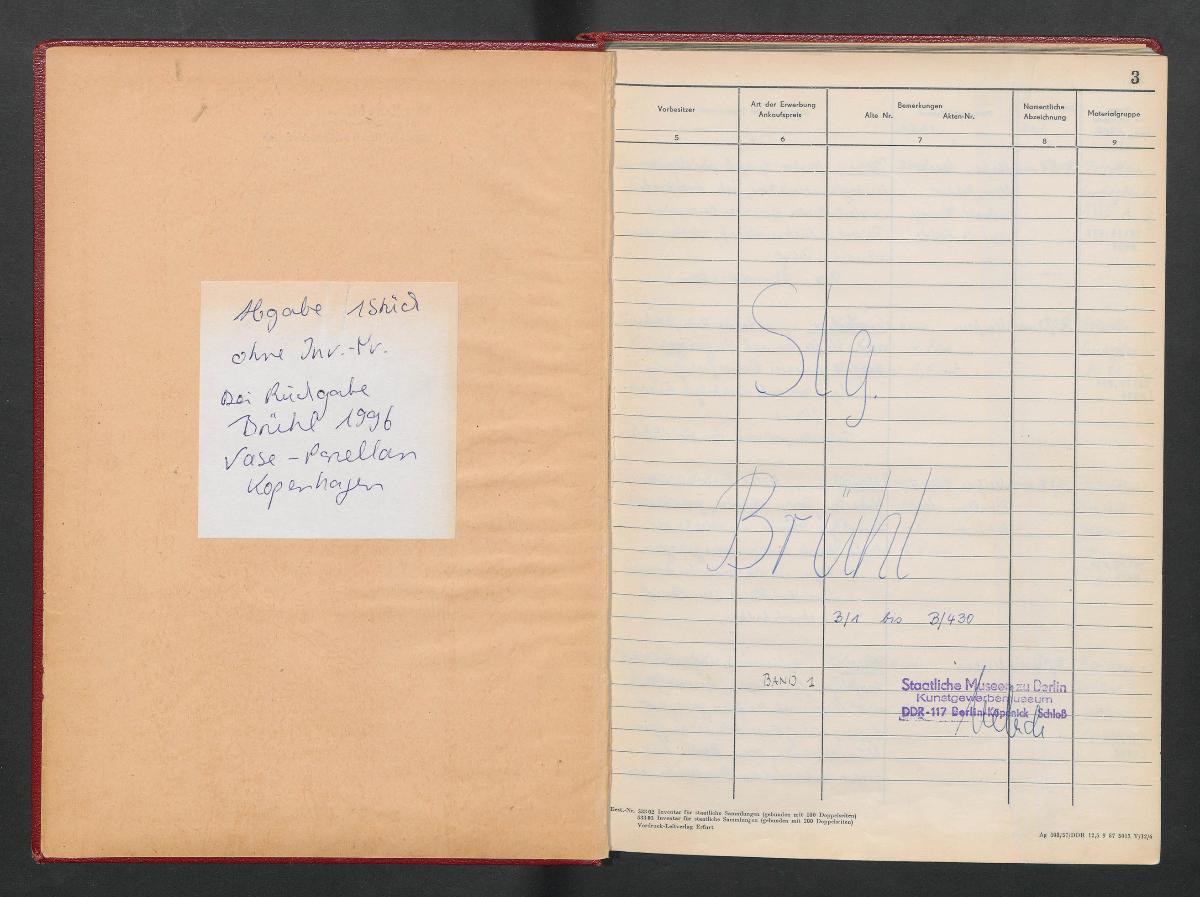 Abgabe 1 Stück
ohne Inv.-Nr.
Bei Rückgabe
Brühl 1996
Vase - Porzellan
Kopenhagen
3
Vorbesitzer
Art der Erwerbung
Ankaufspreis
Bemerkungen
Alte Nr. Akten-Nr.
Namentliche
Abzeichnung
Materialgruppe
5 6 7 8 9
Slg.
Brühl
B/1 bis B/430
BAND 1
Staatliche Museen zu Berlin
Kunstgewerbemuseum
DDR-117 Berlin-Köpenick Schloß
Best.-Nr. 53302 Inventar für staatliche Sammlungen (gebunden mit 100 Doppelseiten)
53303 Inventar für staatliche Sammlungen (gebunden mit 200 Doppelseiten)
Vordruck-Leitverlag Erfurt
Ag 508/57/DDR 12,5 9 57 5013 V/12/6